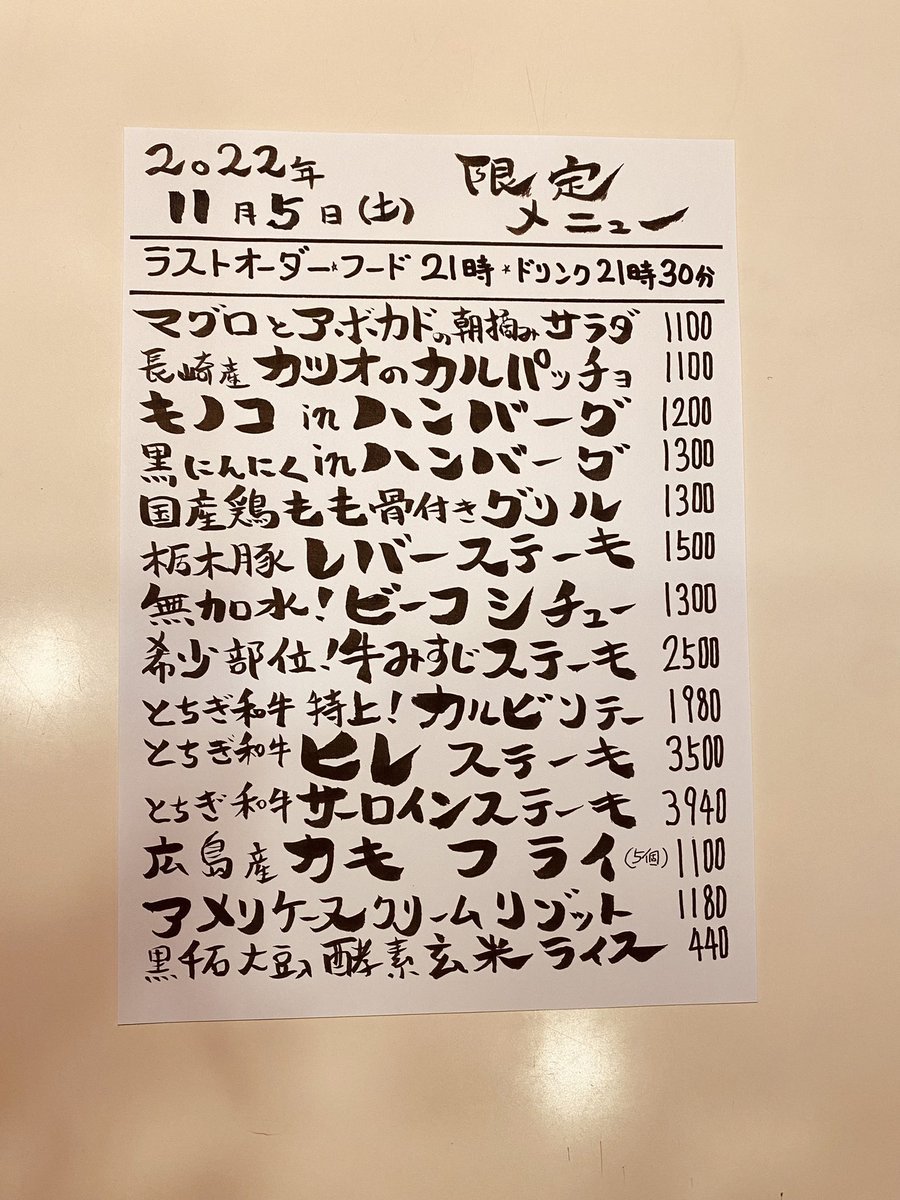 2022年
11月5日(土)
限定
メニュー
ラストオーダー*フード21時*ドリンク21時30分
マグロとアボカドの朝摘みサラダ 1100
長崎産カツオのカルパッチョ 1100
キノコinハンバーグ 1200
黒にんにくinハンバーグ 1300
国産鶏もも骨付きグリル 1300
栃木豚レバーステーキ 1500
無加水!ビーフシチュー 1300
希少部位!牛みすじステーキ 2500
とちぎ和牛特上!カルビソテー 1980
とちぎ和牛ヒレステーキ 3500
とちぎ和牛サーロインステーキ 3940
広島産カキフライ(5個) 1100
アメリケーヌクリームリゾット 1180
黒千石大豆入酵素玄米ライス 440